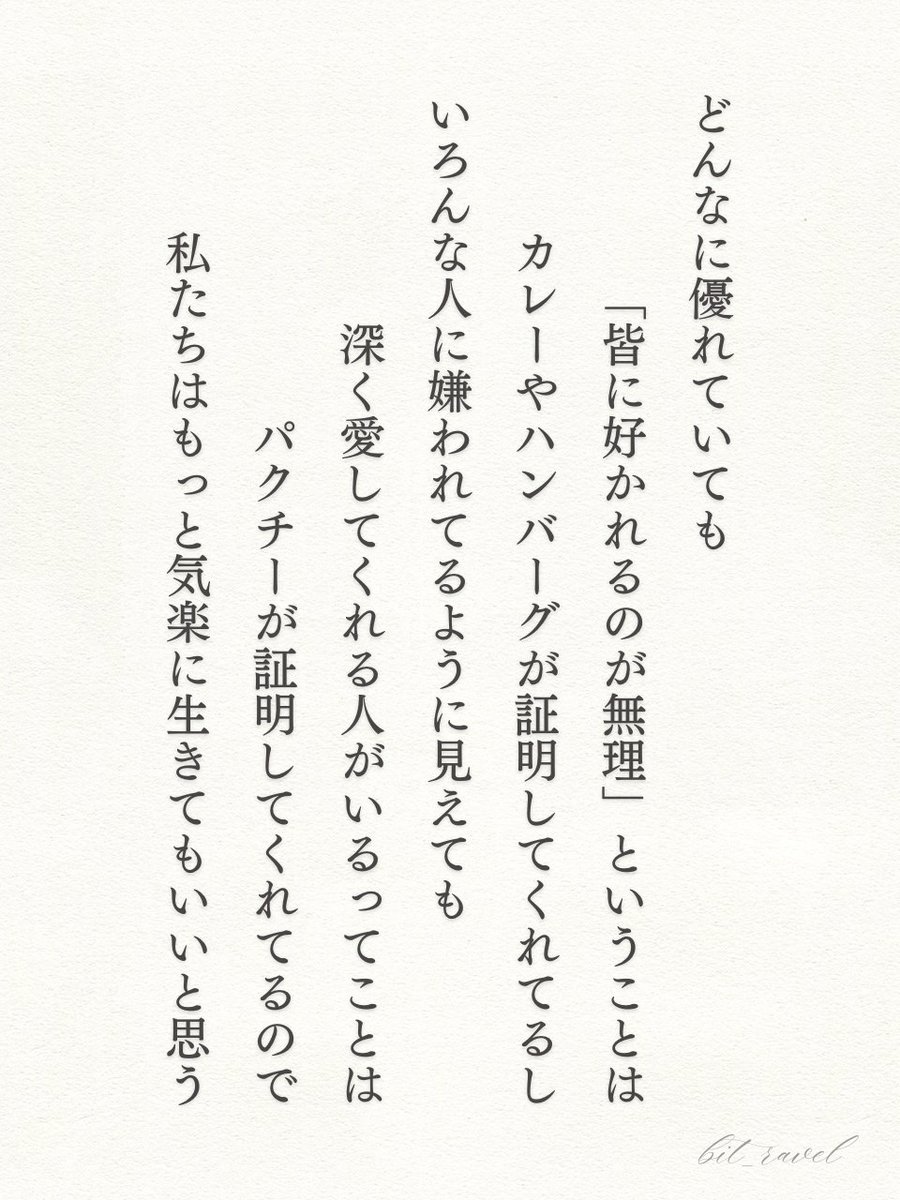 どんなに優れていても
「皆に好かれるのが無理」ということは
カレーやハンバーグが証明してくれてるし
いろんな人に嫌われてるように見えても
深く愛してくれる人がいるってことは
パクチーが証明してくれてるので
私たちはもっと気楽に生きてもいいと思う
bit_ravel